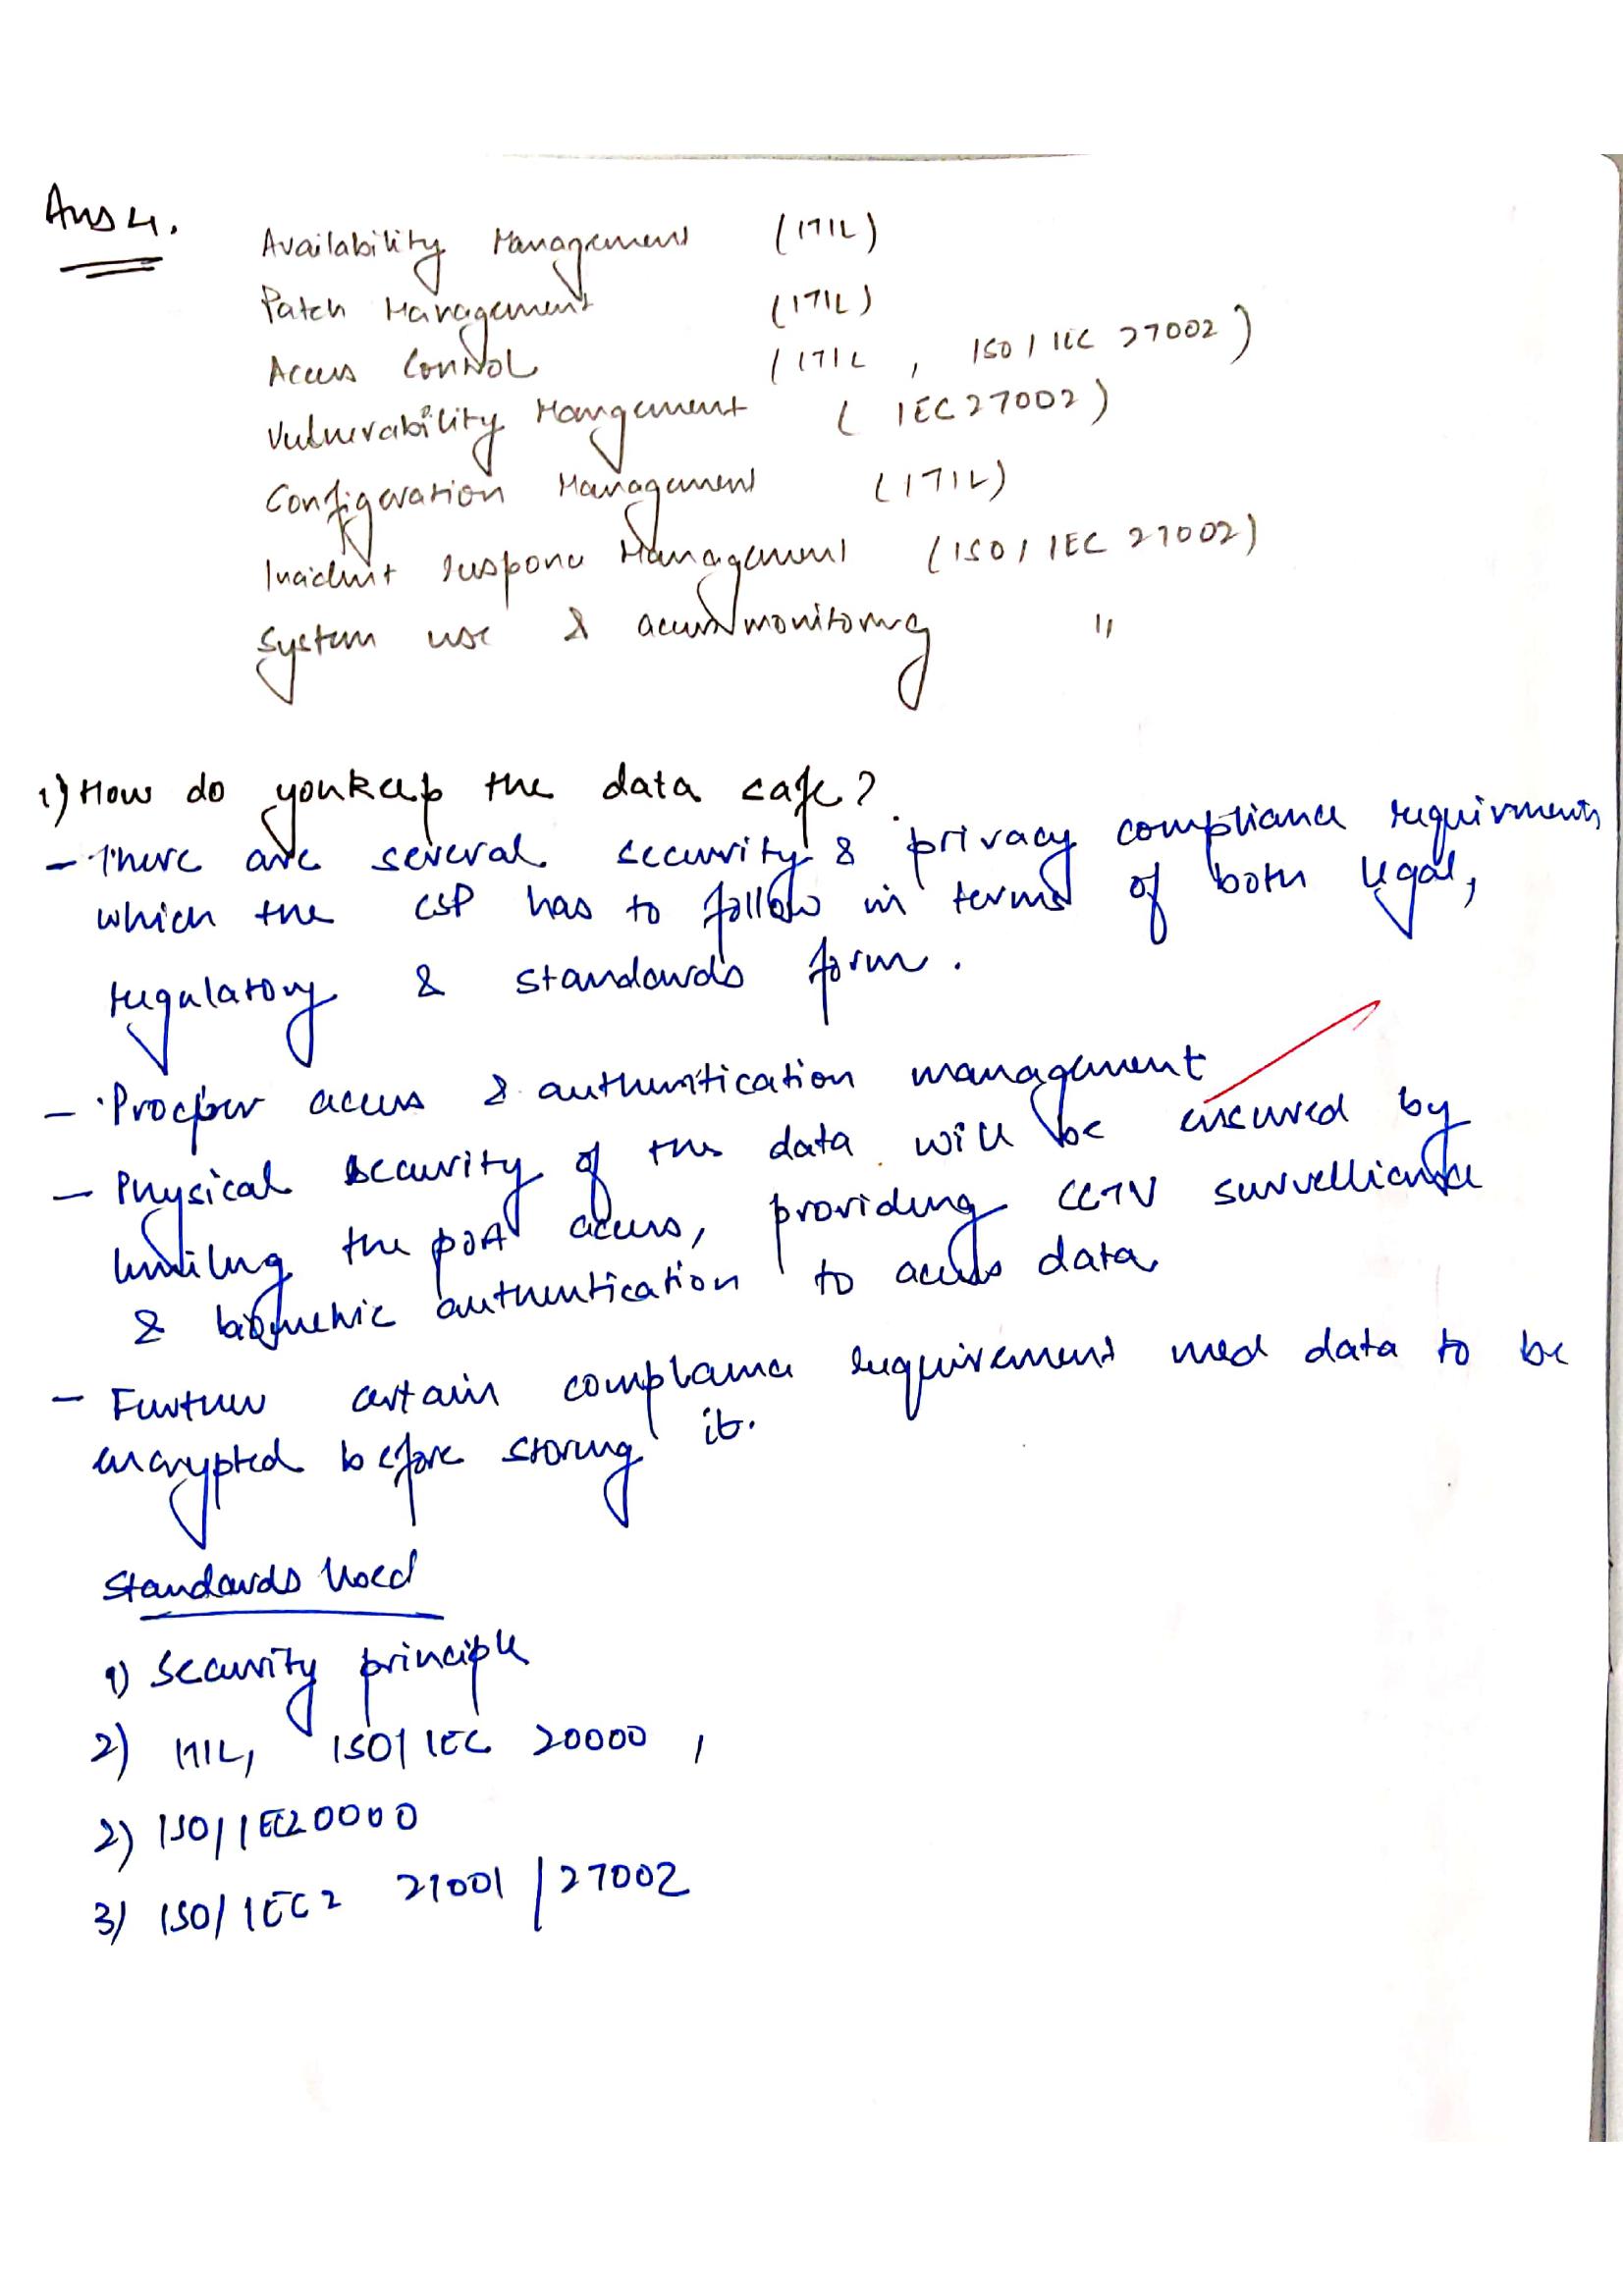 Ans 4.
Availability Management (ITIL)
Patch Management (ITIL)
Access Control (ITIL, ISO/IEC 27002)
Vulnerability Mangement (IEC 27002)
Configuration Management (ITIL)
Incident response Management (ISO/IEC 27002)
System use & access monitoring "
1) How do you keep the data safe?
- There are several security & privacy compliance requirments
which the CSP has to follow in terms of both legal,
regulatory & standards form.
- Procper access & authentication management
- Physical security of the data will be ensured by
limiting the port access, providing CCTV survelliance
& biometric authentication to access data
- Further certain compliance requirement need data to be
encrypted before storing it.
Standards Used
1) Security principle
2) ITIL, ISO/IEC 20000,
2) ISO/IEC20000
3) ISO/IEC2 27001/27002